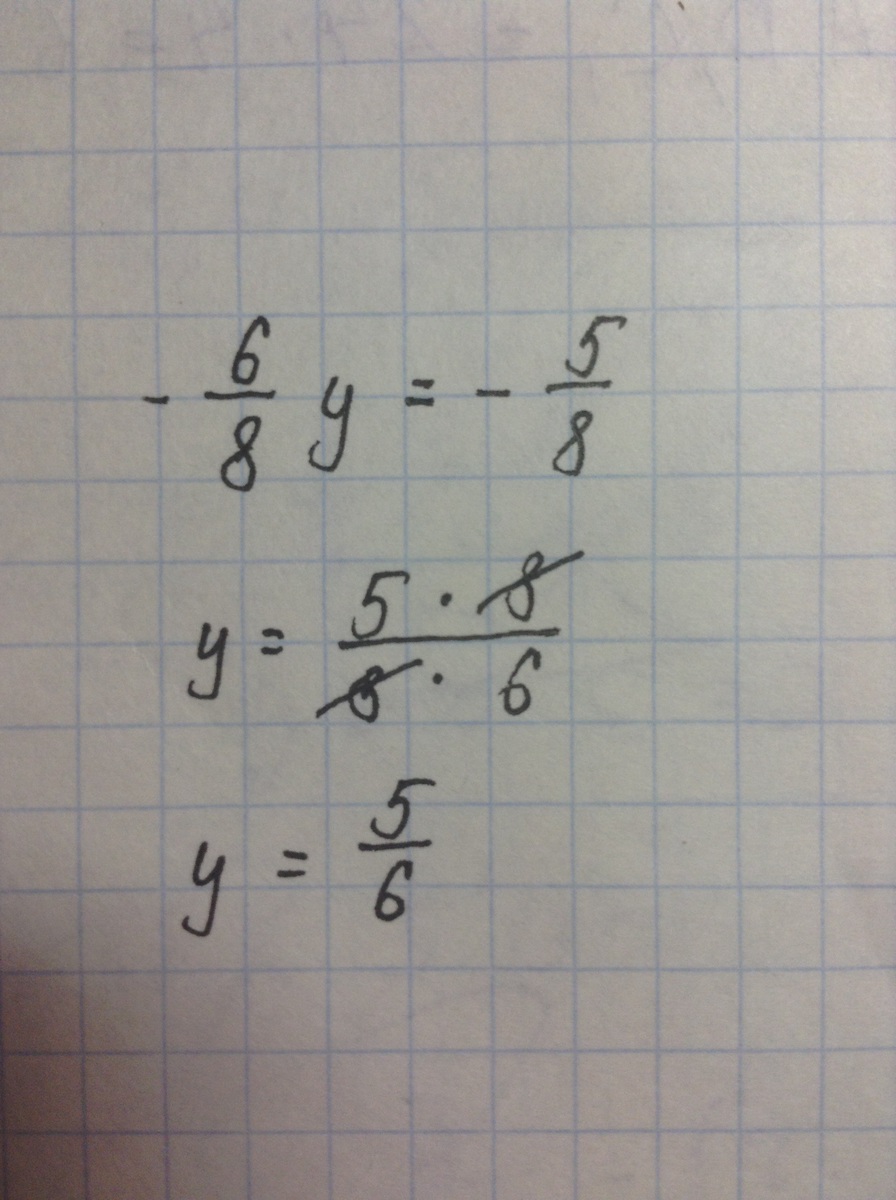 - 6/8 y = - 5/8
y = 5 · 8 / 8 · 6
y = 5/6